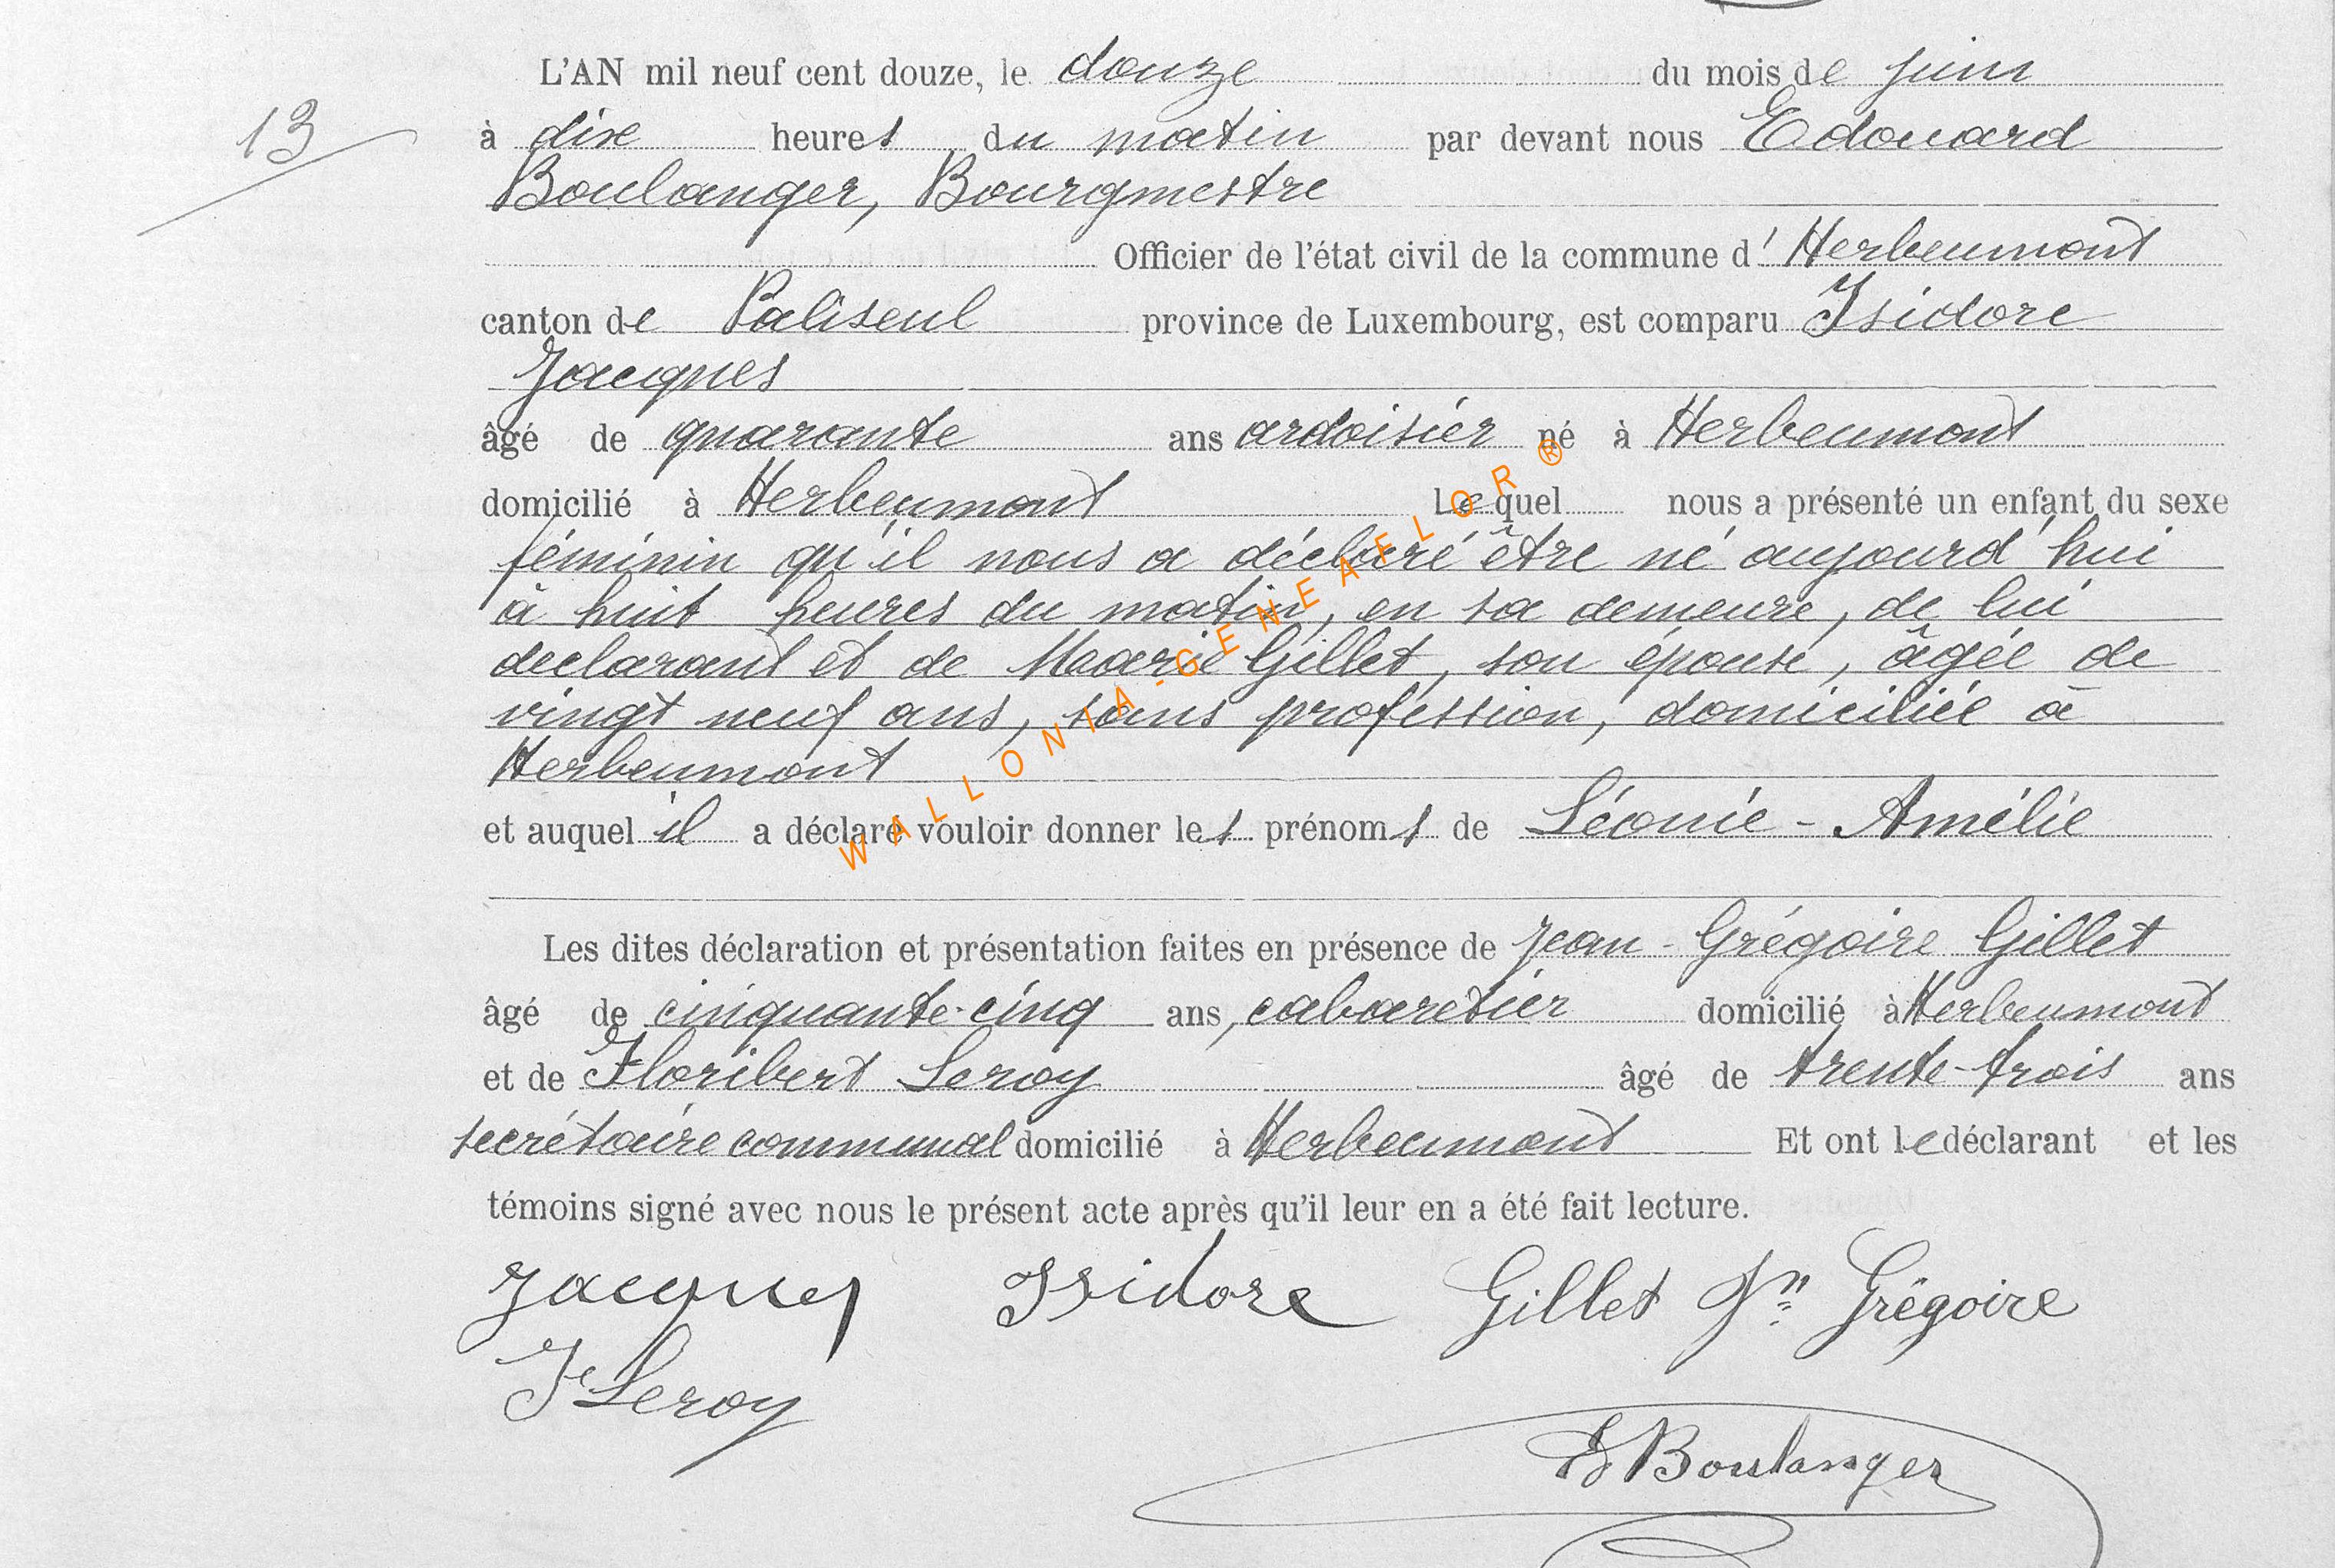 L'AN mil neuf cent douze, le douze du mois de juin
13
à dix heures du matin par devant nous Edouard
Boulanger, Bourgmestre
Officier de l'état civil de la commune d' Herbeumont
canton de Paliseul province de Luxembourg, est comparu Isidore
Jacques
âgé de quarante ans ardoisier né à Herbeumont
domicilié à Herbeumont Lequel nous a présenté un enfant du sexe
féminin qu'il nous a déclaré être né aujourd'hui
à huit heures du matin, en sa demeure, de lui
declarant et de Marie Gillet, son épouse, âgée de
vingt neuf ans, sans profession, domiciliée à
Herbeumont
et auquel il a déclaré vouloir donner les prénoms de Léonie - Amélie
Les dites déclaration et présentation faites en présence de Jean - Grégoire Gillet
âgé de cinquante-cinq ans, cabaretier domicilié à Herbeumont
et de Floribert Leroy âgé de trente-trois ans
secrétaire communal domicilié à Herbeumont Et ont le déclarant et les
témoins signé avec nous le présent acte après qu'il leur en a été fait lecture.
Jacques Isidore Gillet Jn Grégoire
F Leroy
Ed Boulanger
WALLONIA-GENEAFLOR ®